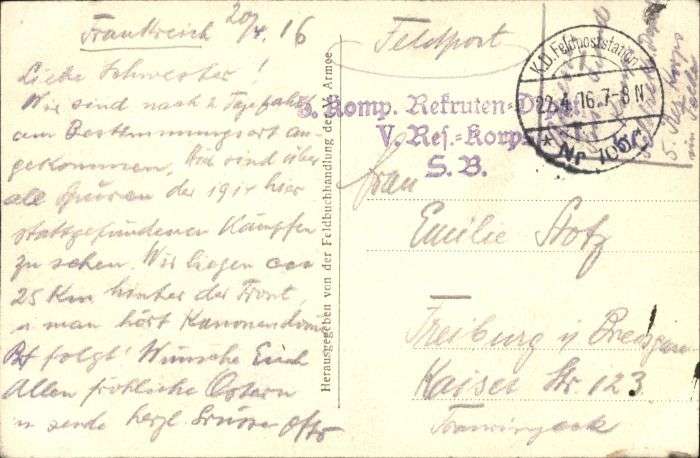 Frankreich 20/4. 16
Liebe Schwester!
Wir sind nach 2 Tage fahrt
am Bestimmungsort an-
gekommen. Hier sind über
all Spuren der 1914 hier
stattgefundenen Kämpfen
zu sehen. Wir liegen ca
25 Km hinter der Front,
u man hört Kanonendonner
Bf folgt! Wünsche Euch
Allen fröhliche Ostern
u sende herzl. Grüsse Otto
Herausgegeben von der Feldbuchhandlung der V. Armee
Feldpost
K.D. Feldpoststation
22.4.16.7-8N
* Nr 106
3. Komp. Rekruten-Depot
V. Res.-Korps
S. B.
Frau
Emilie Stotz
Freiburg i/ Breisgau
Kaiser Str. 123
5. Res Korps